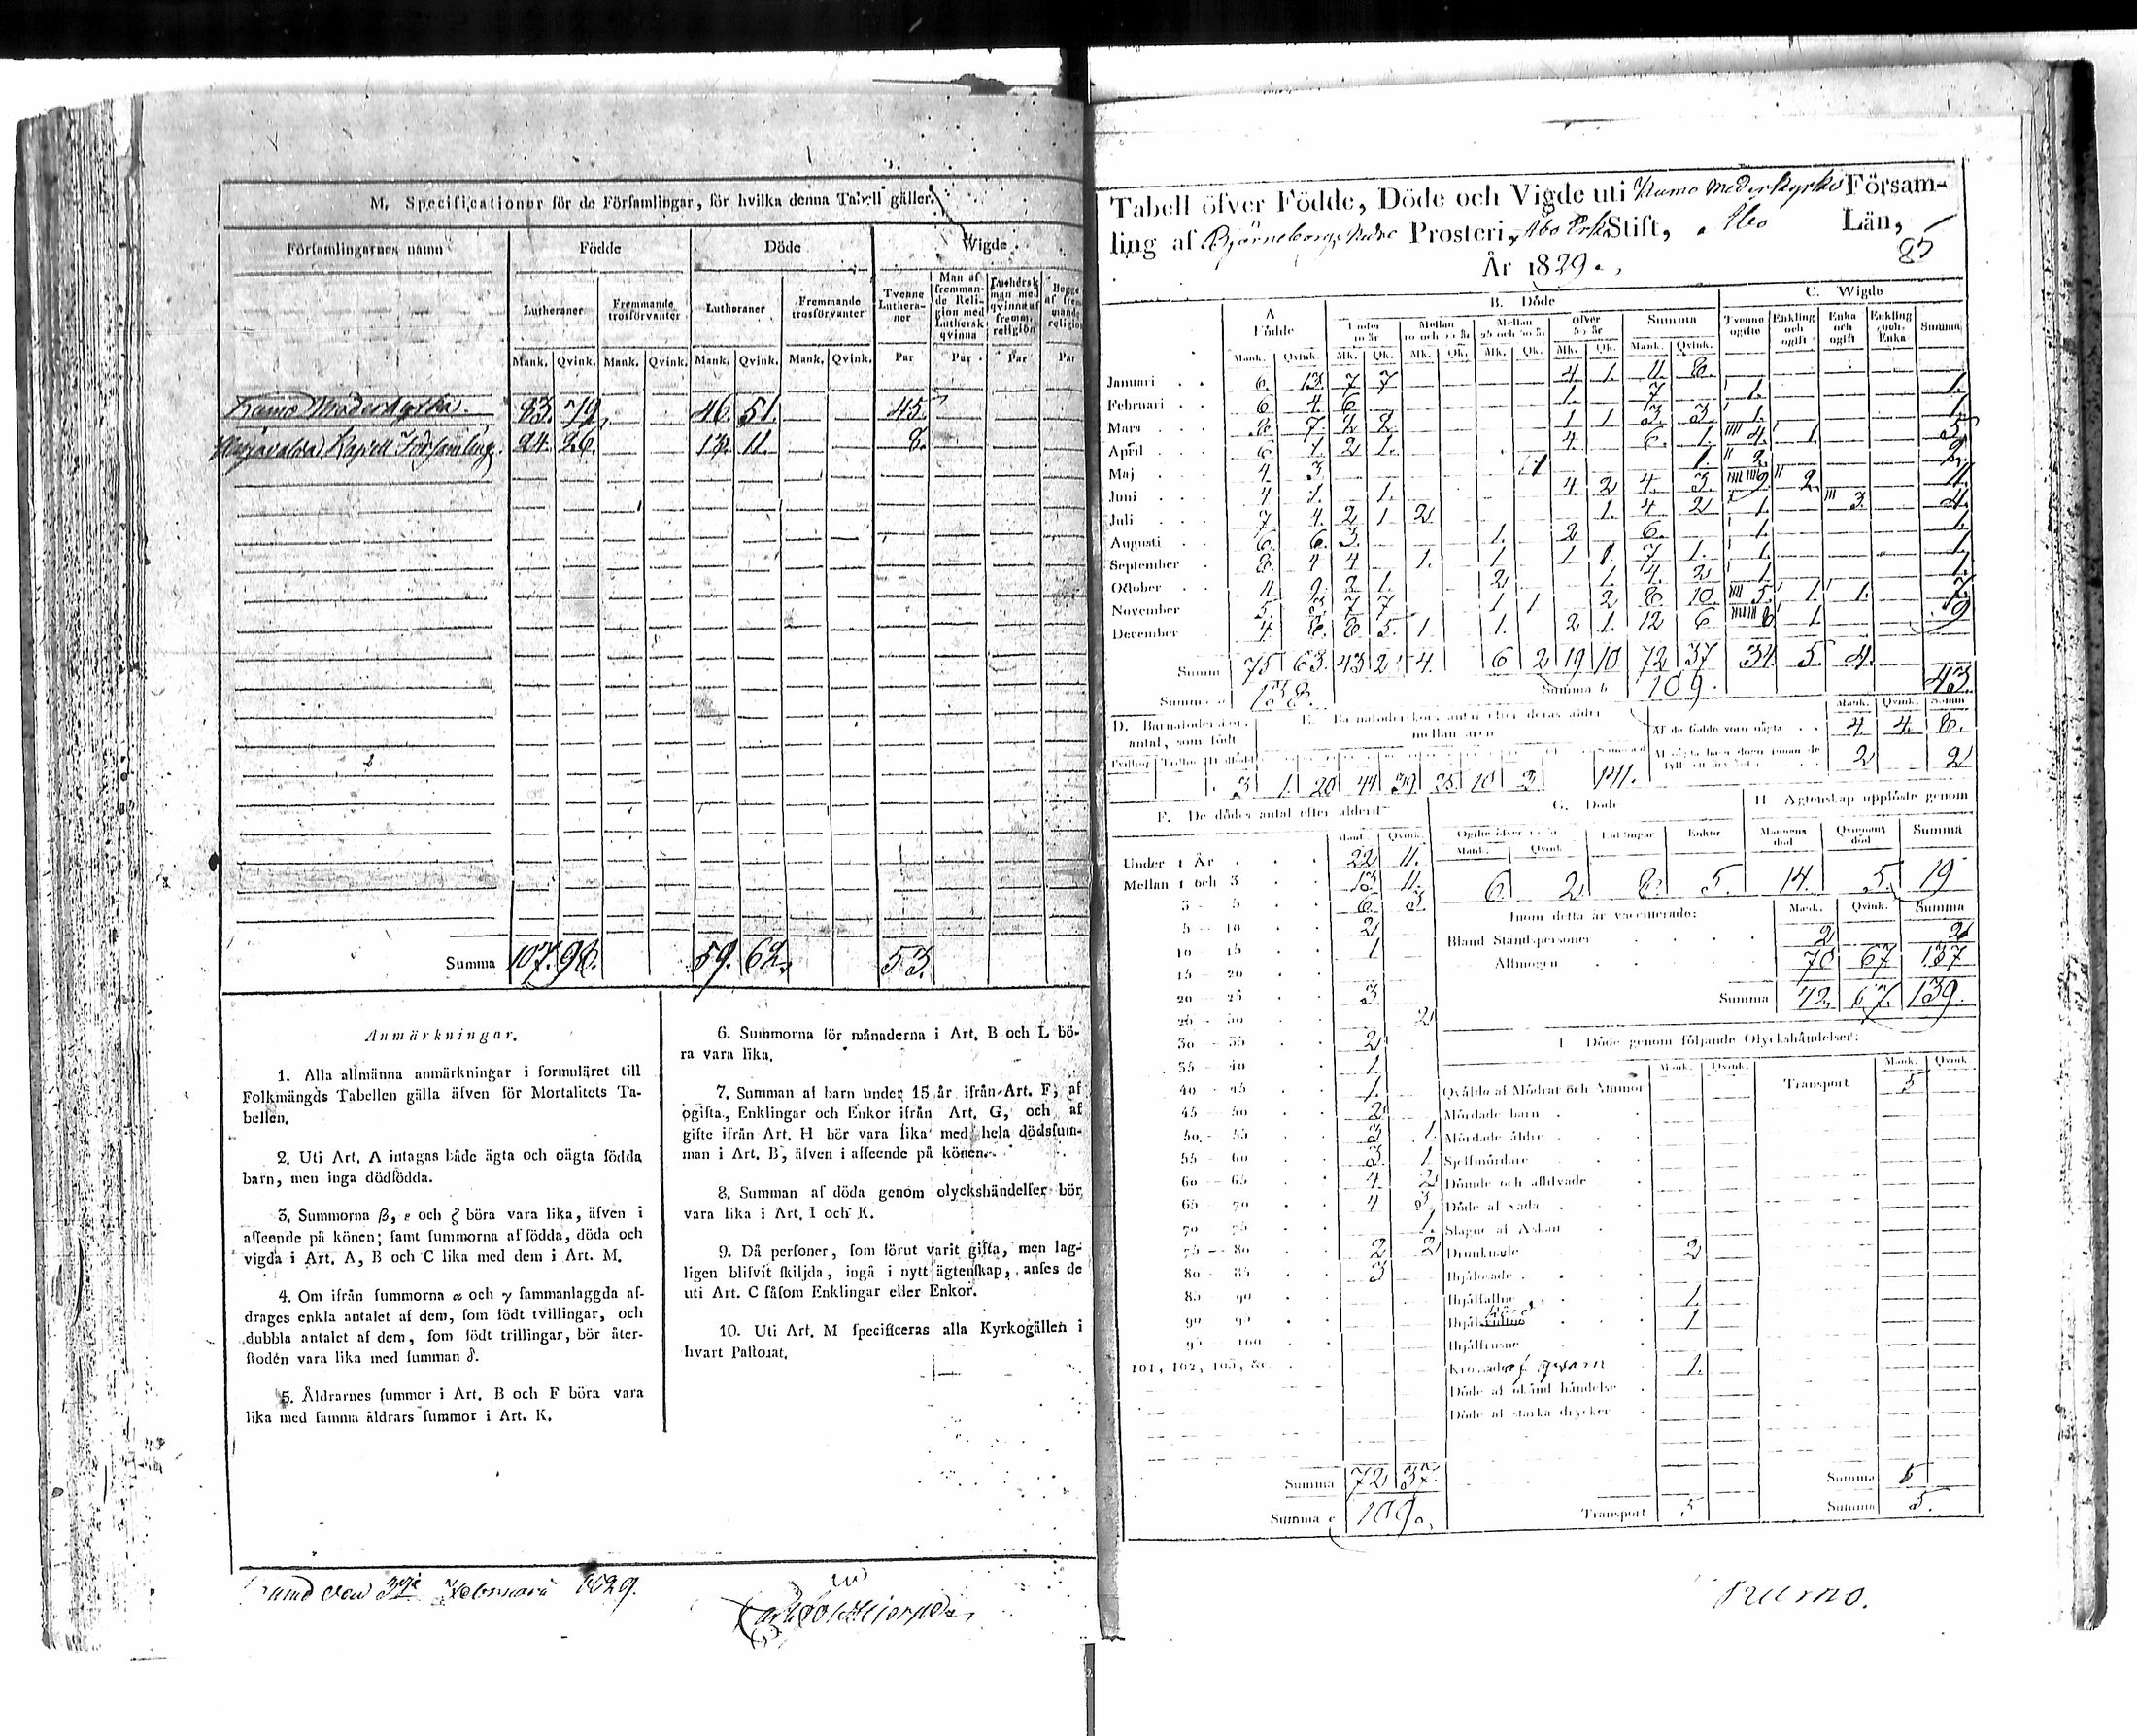 M. Specificationer för de Församlingar, för hvilka denna Tabell gäller.
Församlingarnes namn Födde Döde Wigde.
Lutheraner Fremmande trosförvanter Lutheraner Fremmande trosförvanter Tvenne Lutheraner Man af fremmande Religion med Luthersk qvinna Luthersk man med qvinna af fremm. religion Begge af fremmande religion
Mank. Qvink. Mank. Qvink. Mank. Qvink. Mank. Qvink. Par Par Par Par
Kumo Moderkyrka. 83. 72. 46. 51. 45.
Kapell Församling. 24. 26. 13. 11. 8.
Summa 107. 98. 59. 62. 53.
Anmärkningar.
1. Alla allmänna anmärkningar i formuläret till
Folkmängds Tabellen gälla äfven för Mortalitets Ta-
bellen.
2. Uti Art. A intagas både ägta och oägta födda
barn, men inga dödfödda.
3. Summorna β, ε och ζ böra vara lika, äfven i
afseende på könen; samt summorna af födda, döda och
vigda i Art. A, B och C lika med dem i Art. M.
4. Om ifrån summorna α och γ sammanlaggda af-
drages enkla antalet af dem, som födt tvillingar, och
dubbla antalet af dem, som födt trillingar, bör åter-
stoden vara lika med summan δ.
5. Åldrarnes summor i Art. B och F böra vara
lika med samma åldrars summor i Art. K.
6. Summorna för månaderna i Art. B och L bö-
ra vara lika.
7. Summan af barn under 15 år ifrån Art. F, af
ogifta, Enklingar och Enkor ifrån Art. G, och af
gifte ifrån Art. H bör vara lika med hela dödssum-
man i Art. B, äfven i afseende på könen.
8. Summan af döda genom olyckshändelser bör
vara lika i Art. I och K.
9. Då personer, som förut varit gifta, men lag-
ligen blifvit skiljda, ingå i nytt ägtenskap, anses de
uti Art. C såsom Enklingar eller Enkor.
10. Uti Art. M specificeras alla Kyrkogällen i
hvart Pastorat.
den Februarii 1829.
Tabell öfver Födde, Döde och Vigde uti Kumo Moderkyrko Försam-
ling af Björneborgs Nedre Prosteri, Åbo Stift, Åbo Län,
År 1829.
85
A Födde B. Döde C. Wigde
Under 10 år Mellan 10 och 25 år Mellan 25 och 50 år öfver 50 år Summa Tvenne ogifte Enkling och ogift Enka och ogift Enkling och Enka Summa
Mank. Qvink. Mk. Qk. Mk. Qk. Mk. Qk. Mk. Qk. Mank. Qvink.
Januari 6. 13. 7 7 4 1. 11. 8.
Februari 6. 4. 6 1. 7 1. 1.
Mars 7. 2 2 1 1 3. 3. 1. 1.
April 6 1. 2 1. 4. 6. 1. 4. 1. 5.
Maj 4. 3 1 1. 2. 2.
Juni 4 1. 1. 4. 2 4. 3. 9. 2. 11.
Juli 7 4. 2 1 2 1. 4 2 1. 3. 4.
Augusti 6. 6. 3. 1. 2 6. 1. 1.
September 8. 4 4 1. 1 1 1. 7 1. 1. 1.
October 11. 9. 2 1. 2 1. 4. 2 1. 1.
November 5. 3. 7 7 1 1 2 8 10. 5. 1 1. 7.
December 4. 8. 8 5. 1 1. 2 1. 12 6 8 1. 9
Summa 75 63. 43 4. 6 2 19 10 72 37 34. 5. 4.
Summa a 138. Summa b 109. 43.
D. Barnaföderskors antal, som födt
E. Barnaföderskors antal efter deras ålder mellan åren
3 1. 20 44 39 35 10 3 141.
Mank. Qvink. Summ.
Af de födde voro oägta 4. 4. 8.
2 2
F. De dödes antal efter åldern
Mank. Qvink.
Under 1 År 22 11.
Mellan 1 och 3 13. 11.
3 - 5 6. 3.
5 - 10 2
10 15 1
15 - 20
20 - 25 3.
25 - 30 2
30 - 35 2
35 - 40 1.
40 - 45 1.
45 - 50 2
50 - 55 3 1.
55 - 60 3. 1.
60 - 65 4. 2
65 - 70 4 3
70 - 75 1.
75 - 80 2 2
80 - 85 3
85 90
90 95
95 100
101, 102, 103, &c.
Summa 72 37.
Summa e 109.
G. Döde
Ogifte öfver 15 år Enklingar Enkor
Mank. Qvink.
6 2 8. 5.
H Ägtenskap upplöste genom
Mannens död Qvinnans död Summa
14. 5. 19
Inom detta år vaccinerade: Mank. Qvink. Summa
Bland Ståndspersoner 2 2
Allmogen 70 67 137
Summa 72. 67. 139.
I Döde genom följande Olyckshändelser:
Mank. Qvink. Mank. Qvink.
Qväfde af Mödrar och Ammor Transport 5
Mördade barn
Mördade äldre
Sjelfmördare
Dömde och aflifvade
Döde af våda
Slagne af Åskan
Drunknade 2
Ihjälbrände
Ihjälfallne 1.
1
Ihjälfrusne
1.
Döde af okänd händelse
Döde af starka drycker
Summa 5
Transport 5 Summa 5.
Kumo.